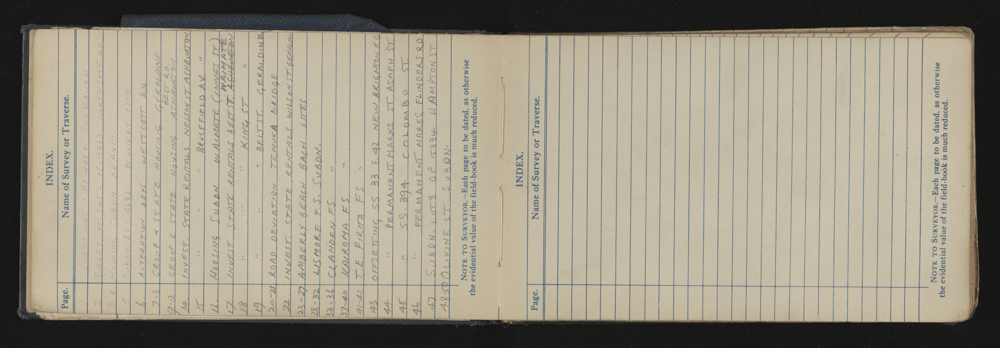 INDEX.
Page. Name of Survey or Traverse.
6 ALTERATION BDY WESTCOTT RD
7-8 GROUP 4 STATE HOUSING GERALDINE
9-13 GROUP 6 STATE HOUSING ASHBURTON
14 INVEST. STATE RENTALS NELSON ST ASHBURTON
15 BELLEFIELD AV "
16 HOUSING SUBDN WAIMATE (INNES ST)
17 INVEST STATE RENTALS BELT ST WAIMATE
18 " " " KING ST "
19 " " " BELT ST. GERALDINE
20-21 ROAD DEVIATION TEMUKA BRIDGE
22 INVEST STATE RENTALS WILSON ST
23-27 AMBERLY BEACH BACH SITES
28-32 LISMORE F.S. SUBDN.
33-36 CLANDEN F.S "
37-40 KAIROMA F.S "
41-42 TE PIRITA F.S "
43 OFFSETTING SS 33 & 42 NEW BRIGHTON RD
44 PERMANENT MARKS ST ASAPH ST
45 " S.S. 394 COLOMBO ST.
46 " PERMANENT MARKS FLINDERS RD
47 SUBDN LOT 8 DP 15234 HAMPTON ST
48-50 OLIVINE ST SUBDN.
NOTE TO SURVEYOR.—Each page to be dated, as otherwise
the evidential value of the field-book is much reduced.
INDEX.
Page. Name of Survey or Traverse.
NOTE TO SURVEYOR.—Each page to be dated, as otherwise
the evidential value of the field-book is much reduced.